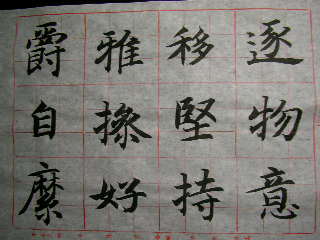 逐物意
移堅持
雅操好
爵自縻